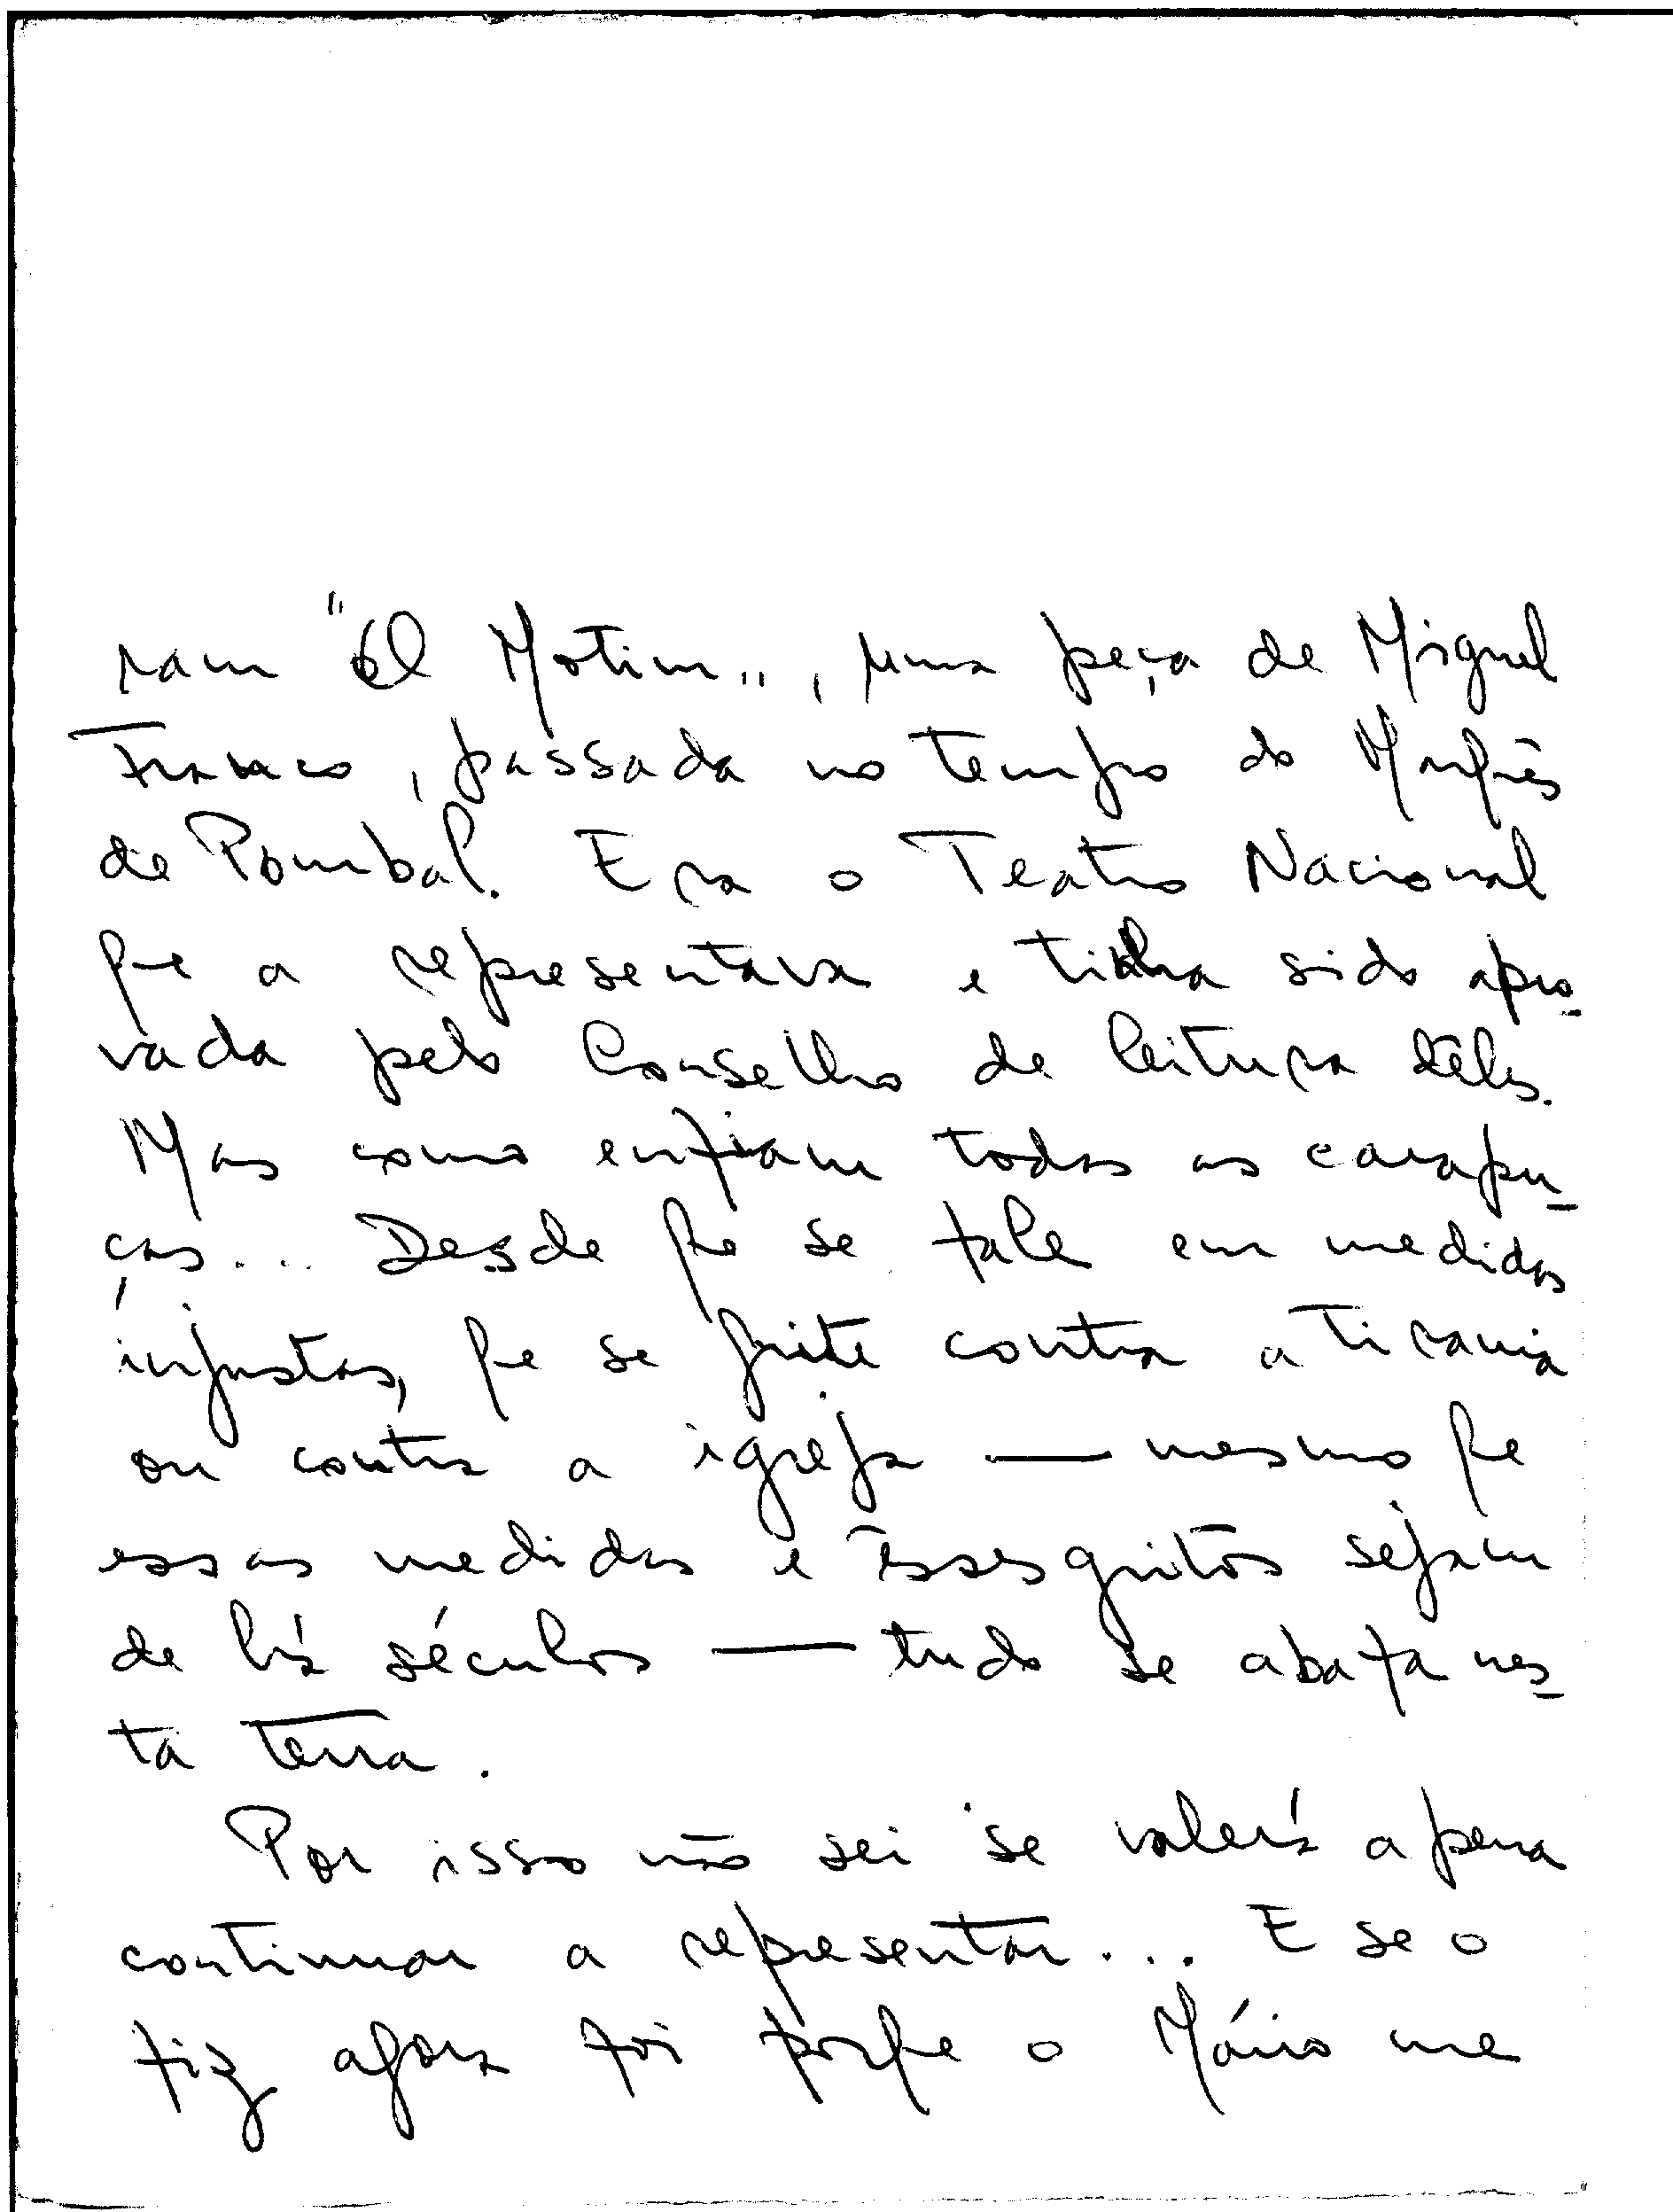 ram "O Motim", uma peça de Miguel
Franco, passada no tempo do Marquês
de Pombal. Era o Teatro Nacional
que a representava e tinha sido apro-
vada pelo Conselho de leitura dêles.
Mas como enfiam todas as carapu-
ças... Desde que se fale em medidas
injustas, que se grite contra a tirania
ou contra a igreja — mesmo que
essas medidas e êsses gritos sejam
de há séculos — tudo se abafa nes-
ta terra.
Por isso não sei se valerá a pena
continuar a representar... E se o
fiz agora foi porque o Mário me